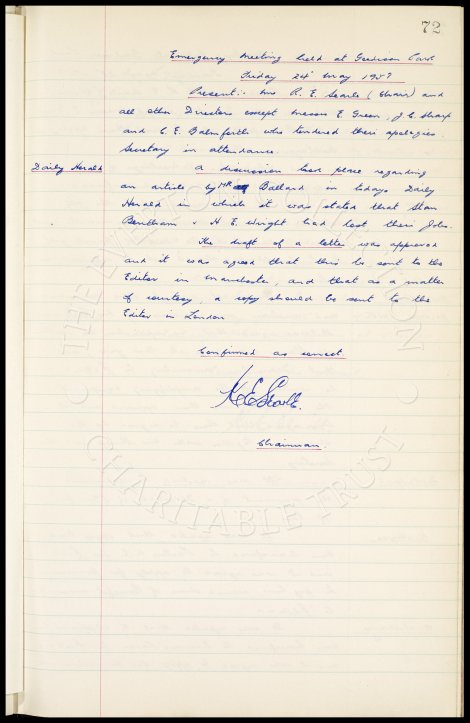 72
Emergency Meeting held at Goodison Park
Friday 24th May 1957
Present:- Mr R. E. Searle (Chair) and
all other Directors except Messrs E Green, J. C. Sharp
and C. E. Balmforth who tendered their apologies.
Secretary in attendance.
Daily Herald
A discussion took place regarding
an article by MR Ballard in todays Daily
Herald in which it was stated that Stan
Bentham & H E Wright had lost their Jobs.
The draft of a letter was approved
and it was agreed that this be sent to the
Editor in Manchester, and that as a matter
of courtesy, a copy should be sent to the
Editor in London
Confirmed as correct.
Chairman.
THE EVERTON
CHARITABLE TRUST